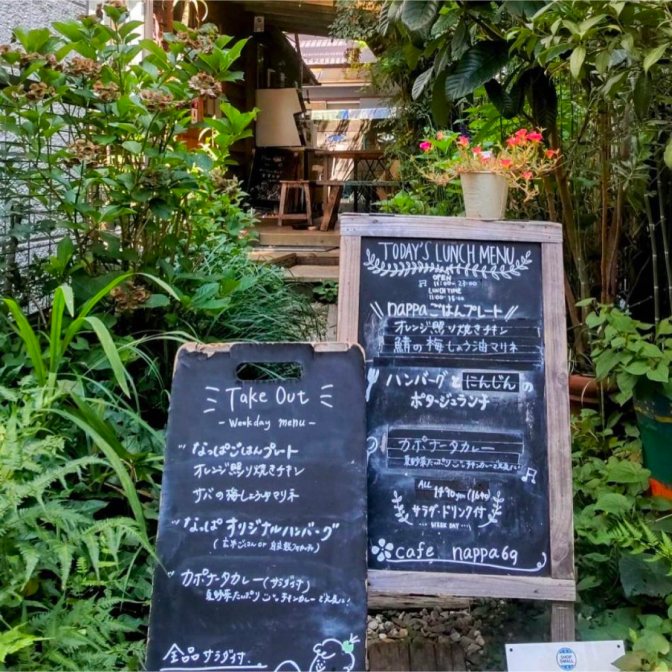 TODAY'S LUNCH MENU
OPEN
LUNCH TIME
nappaごはんプレート
オレンジ照り焼きチキン
鯖の梅しょう油マリネ
ハンバーグとにんじんの
ポタージュランチ
カポナータカレー
ALL
サラダ・ドリンク付
WEEK DAY
cafe nappa69
Take Out
- Weekday menu -
なっぱごはんプレート
オレンジ照り焼きチキン
サバの梅しょうゆマリネ
なっぱオリジナルハンバーグ
カポナータカレー(サラダ付)
全品サラダ付.
SHOP
SMALL